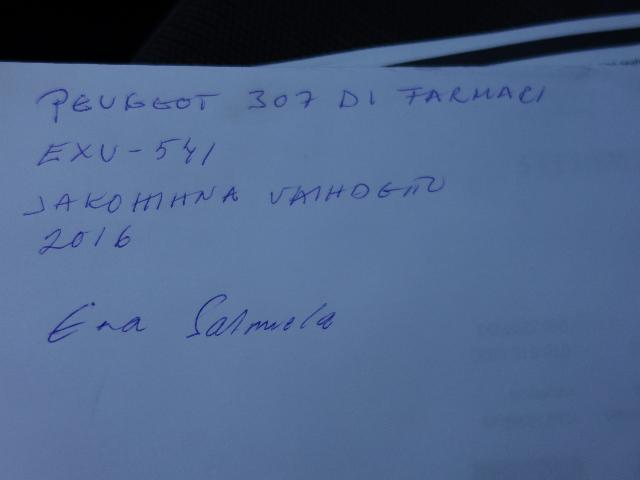 PEUGEOT 307 DI FARMARI
EXU-541
JAKOHIHNA VAIHDETTU
2016